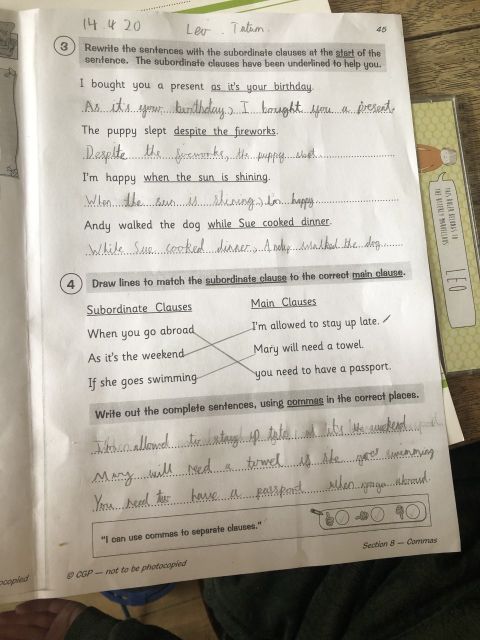 14.4.20 Leo. Tatum.
45
3 Rewrite the sentences with the subordinate clauses at the start of the
sentence. The subordinate clauses have been underlined to help you.
I bought you a present as it's your birthday.
As it's your birthday, I bought you a present.
The puppy slept despite the fireworks.
Despite the fireworks, the puppy slept
I'm happy when the sun is shining.
When the sun is shining, im happy
Andy walked the dog while Sue cooked dinner.
While Sue cooked dinner, Andy walked the dog
4 Draw lines to match the subordinate clause to the correct main clause.
Subordinate Clauses
Main Clauses
When you go abroad
I'm allowed to stay up late.
As it's the weekend
Mary will need a towel.
If she goes swimming
you need to have a passport.
Write out the complete sentences, using commas in the correct places.
allowed to stay up late as it's the weekend
Mary will need a towel if she goes swimming
You need to have a passport when abroad.
"I can use commas to separate clauses."
© CGP — not to be photocopied
Section 8 — Commas
ocopied
THIS RULER BELONGS TO
LEO